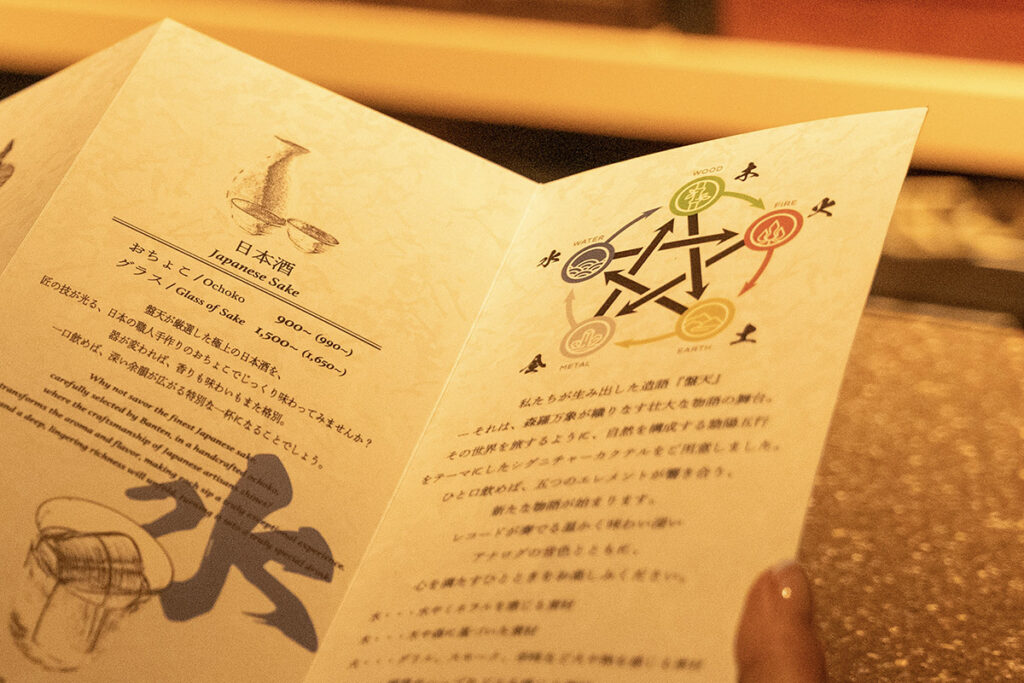 日本酒
Japanese Sake
おちょこ / Ochoko 900~ (990~)
グラス / Glass of Sake 1,500~ (1,650~)
盤天が厳選した極上の日本酒を、
匠の技が光る、日本の職人手作りのおちょこでじっくり味わってみませんか?
器が変われば、香りも味わいもまた格別。
一口飲めば、深い余韻が広がる特別な一杯になることでしょう。
Why not savor the finest Japanese sake,
carefully selected by Banten, in a handcrafted ochoko,
where the craftsmanship of Japanese artisans shines?
transforms the aroma and flavor, making each sip a truly exceptional experience.
and a deep, lingering richness will
水
WOOD 木
FIRE 火
WATER 水
EARTH 土
METAL 金
私たちが生み出した造語『盤天』
―それは、森羅万象が織りなす壮大な物語の舞台。
その世界を旅するように、自然を構成する陰陽五行
をテーマにしたシグニチャーカクテルをご用意しました。
ひと口飲めば、五つのエレメントが響き合う、
新たな物語が始まります。
レコードが奏でる温かく味わい深い
アナログの音色とともに、
心を満たすひとときをお楽しみください。
水・・・水やミネラルを感じる素材
木・・・木や森に基づいた素材
火・・・グラス、スモーク、辛味など火や熱を感じる素材